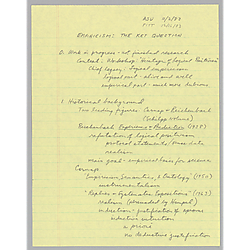 ASU 11/2/87
EMPIRICISM: THE KEY QUESTION
0. Work in progress - not finished research
Context: Workshop: "Heritage of Logical Positivism"
Chief legacy: logical empiricism
logical part - alive and well
empiricist part - much more dubious
1. Historical background
Two leading figures: Carnap & Reichenbach
(Schilpp volume)
Reichenbach Experience & Prediction (1938)
repudiation of logical positivism
protocol statements / sense data
realism
main goal - empirical basis for science
Carnap
"Empiricism, Semantics, & Ontology" (1950)
instrumentalism
"Replies & Systematic Expositions" (1963)
realism (persuaded by Hempel)
induction - justification of axioms
inductive intuition
a priori
no deductive justification